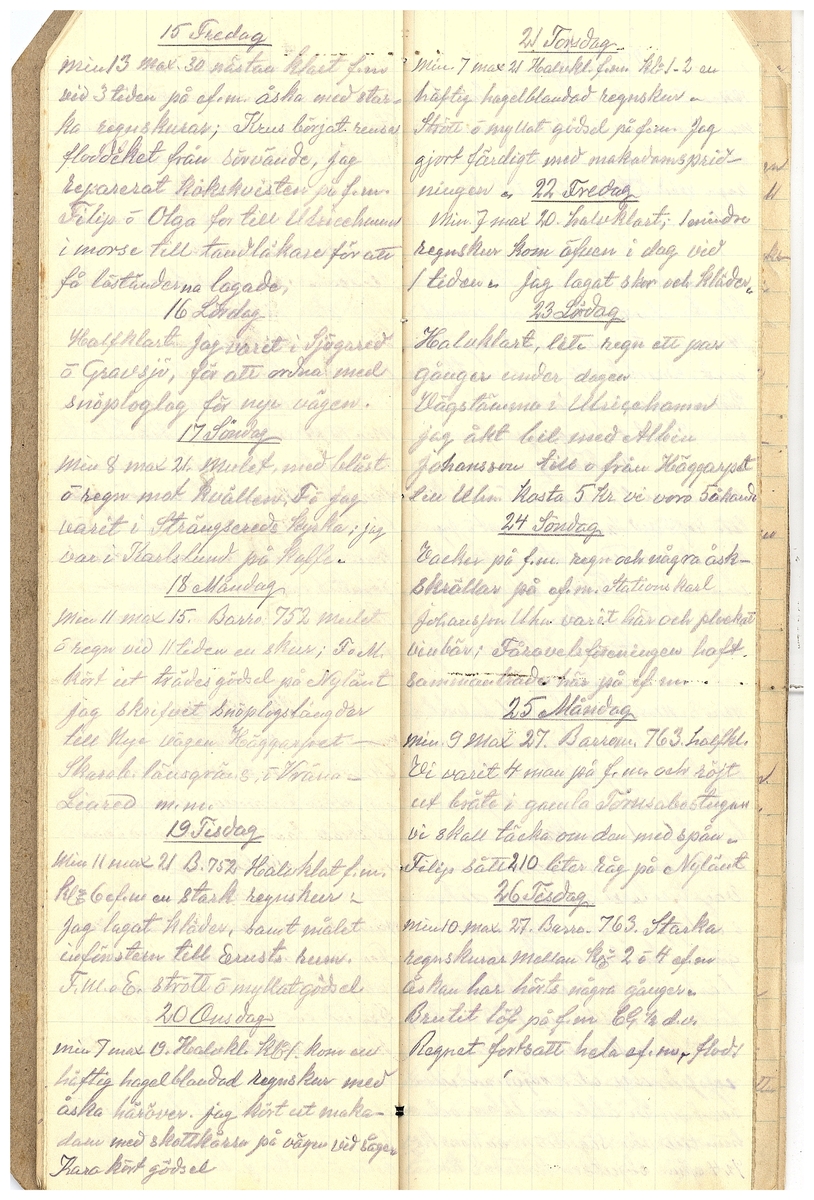 15 Fredag
Min 13 max. 30 nästan klart f.m
vid 3 tiden på ef.m. åska med star-
ka regnskurar; Krus börjat rensa
floddiket från Sörvände, jag
reparerat kökskvisten på f.m.
Filip o Olga for till Ulricehamn
i morse till tandläkare för att
få löständerna lagade;
16 Lördag
Halfklart. Jag varit i Sjögared
o Gravsjö, för att ordna med
snöploglag för nye vägen.
17 Söndag
Min 8 max 21. Mulet, med blåst
o regn mot kvällen, F o jag
varit i Strängsereds kyrka; jag
var i Karlslund på kaffe.
18 Måndag
Min 11 max 15. Barro. 752 mulet
o regn vid 11 tiden en skur; F o M.
kört ut trädesgödsel på Nylänt
Jag skrifvit snöplogslängder
till Nye vägen Häggarpet -
länsgräns, o
Liared m.m.
19 Tisdag
Min 11 max 21 B. 752 Halvklat f.m.
Kl 6 ef.m en stark regnskur.
Jag lagat kläder, samt målet
infönstern till Ernsts rum.
F. M. o E. strött o myllat gödsel
20 Onsdag
Min 7 max 19. Halvkl. Kl 1. kom en
häftig hagelblandad regnskur med
åska häröver. jag kört ut maka-
dam med skottkärra på vägen vid sågen
Kara kört gödsel
21 Torsdag
Min. 7 max 21 Halvkl. f.m. kl 1-2 en
häftig hagelblandad regnskur.
Strött o myllat gödsel på f.m. Jag
gjort färdigt med makadamsprid-
ningen. 22 Fredag
Min. 7 max 20. halvklart; 1 mindre
regnskur kom äfven i dag vid
1 tiden. jag lagat skor och kläder.
23 Lördag
Halvklart, lite regn ett par
gånger under dagen
Vägstämma i Ulricehamn
jag åkt bil med Albin
Johansson till o från Häggarpet
till Uhn. Kosta 5 Kr vi voro 5 åkande
24 Söndag
Vacker på f.m. regn och några åsk-
skrällar på ef.m. Stationskarl
Johansson Uhn varit här och plockat
vinbär; Fåravelsföreningen haft
sammanträde här på ef.m.
25 Måndag
min. 9 Max 27. Barrom. 763. halfkl.
Vi varit 4 man på f.m. och röjt
ut bråte i gamla Törnsabostugan
vi skall täcka om den med spån.
Filip sått 210 liter råg på Nylänt
26 Tisdag
Min 10. max 27. Barro. 763. Starka
regnskurar mellan Kl 2 o 4 ef.m
åskan har hörts några gånger.
Brutit löf på f.m
Regnet fortsatt hela ef.m.